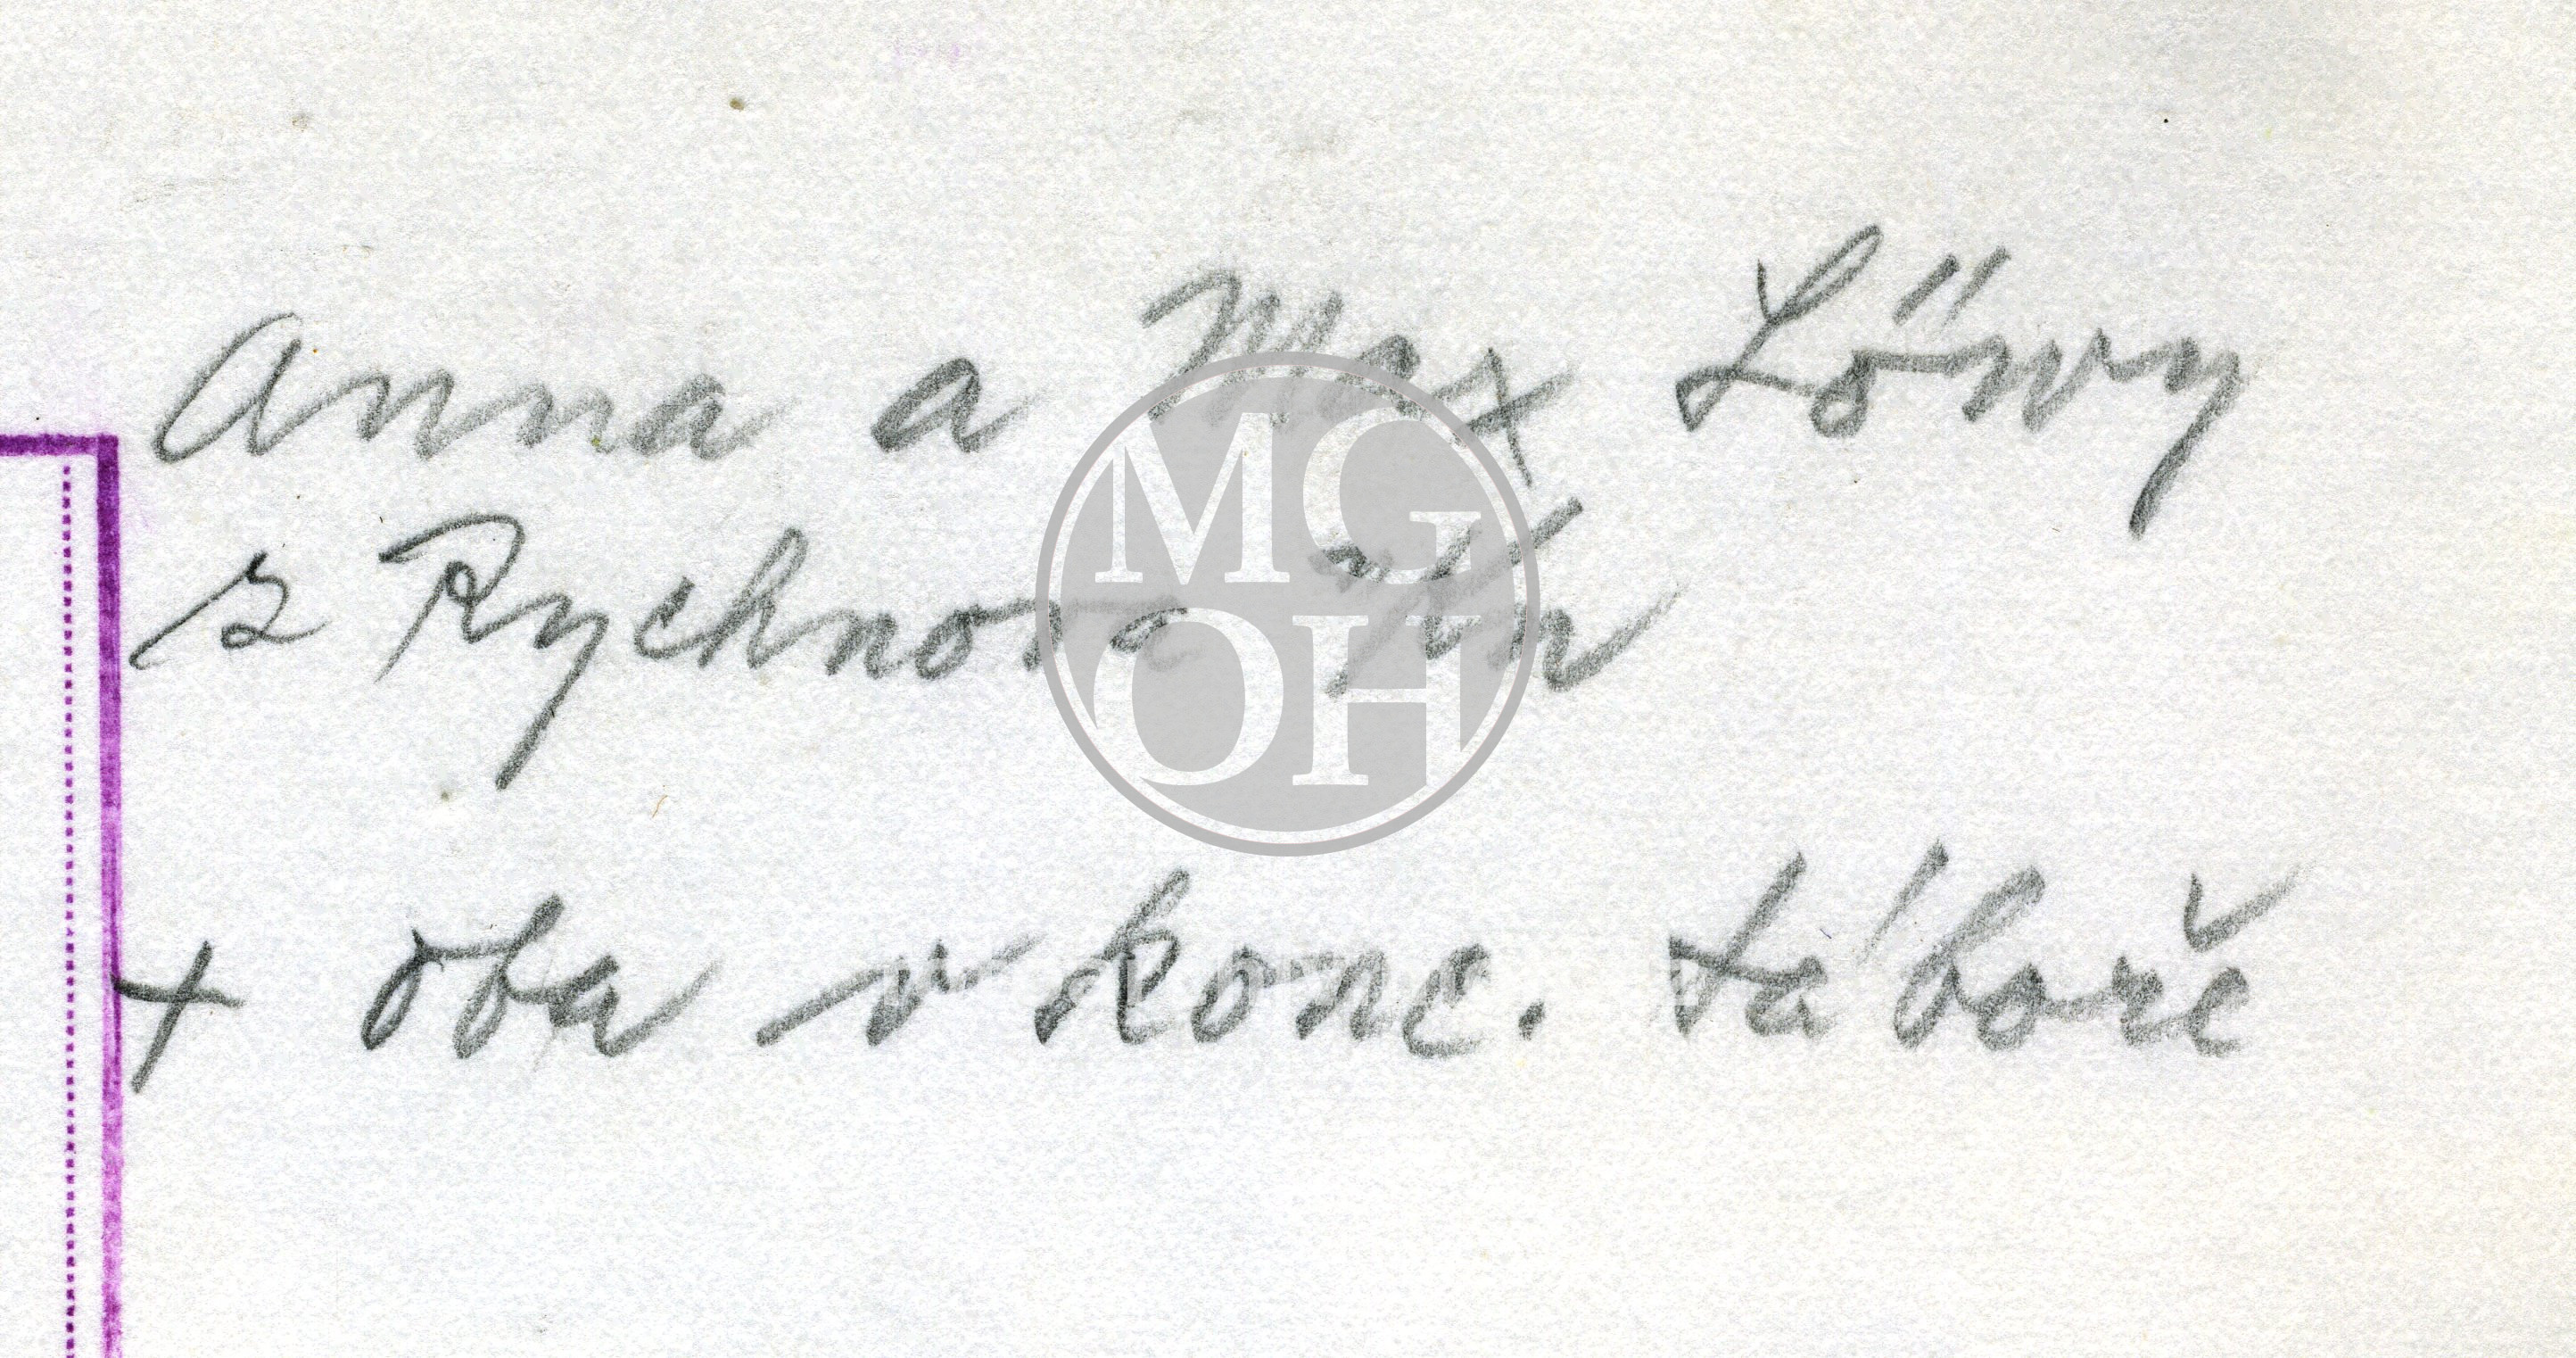 Anna a Max Löwy
z Rychnova
+ oba v konc. táboře
MG
OH